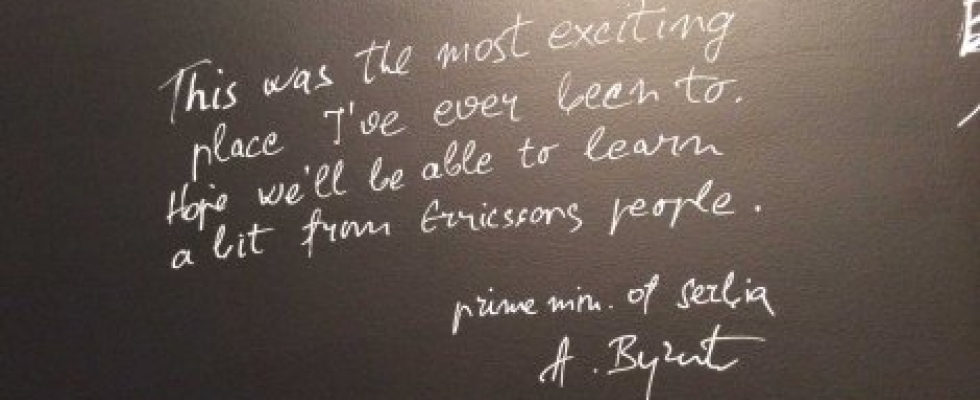 This was the most exciting
place I've ever been to.
Hope we'll be able to learn
a bit from Erricssons people.
prime min. of serbia
A.